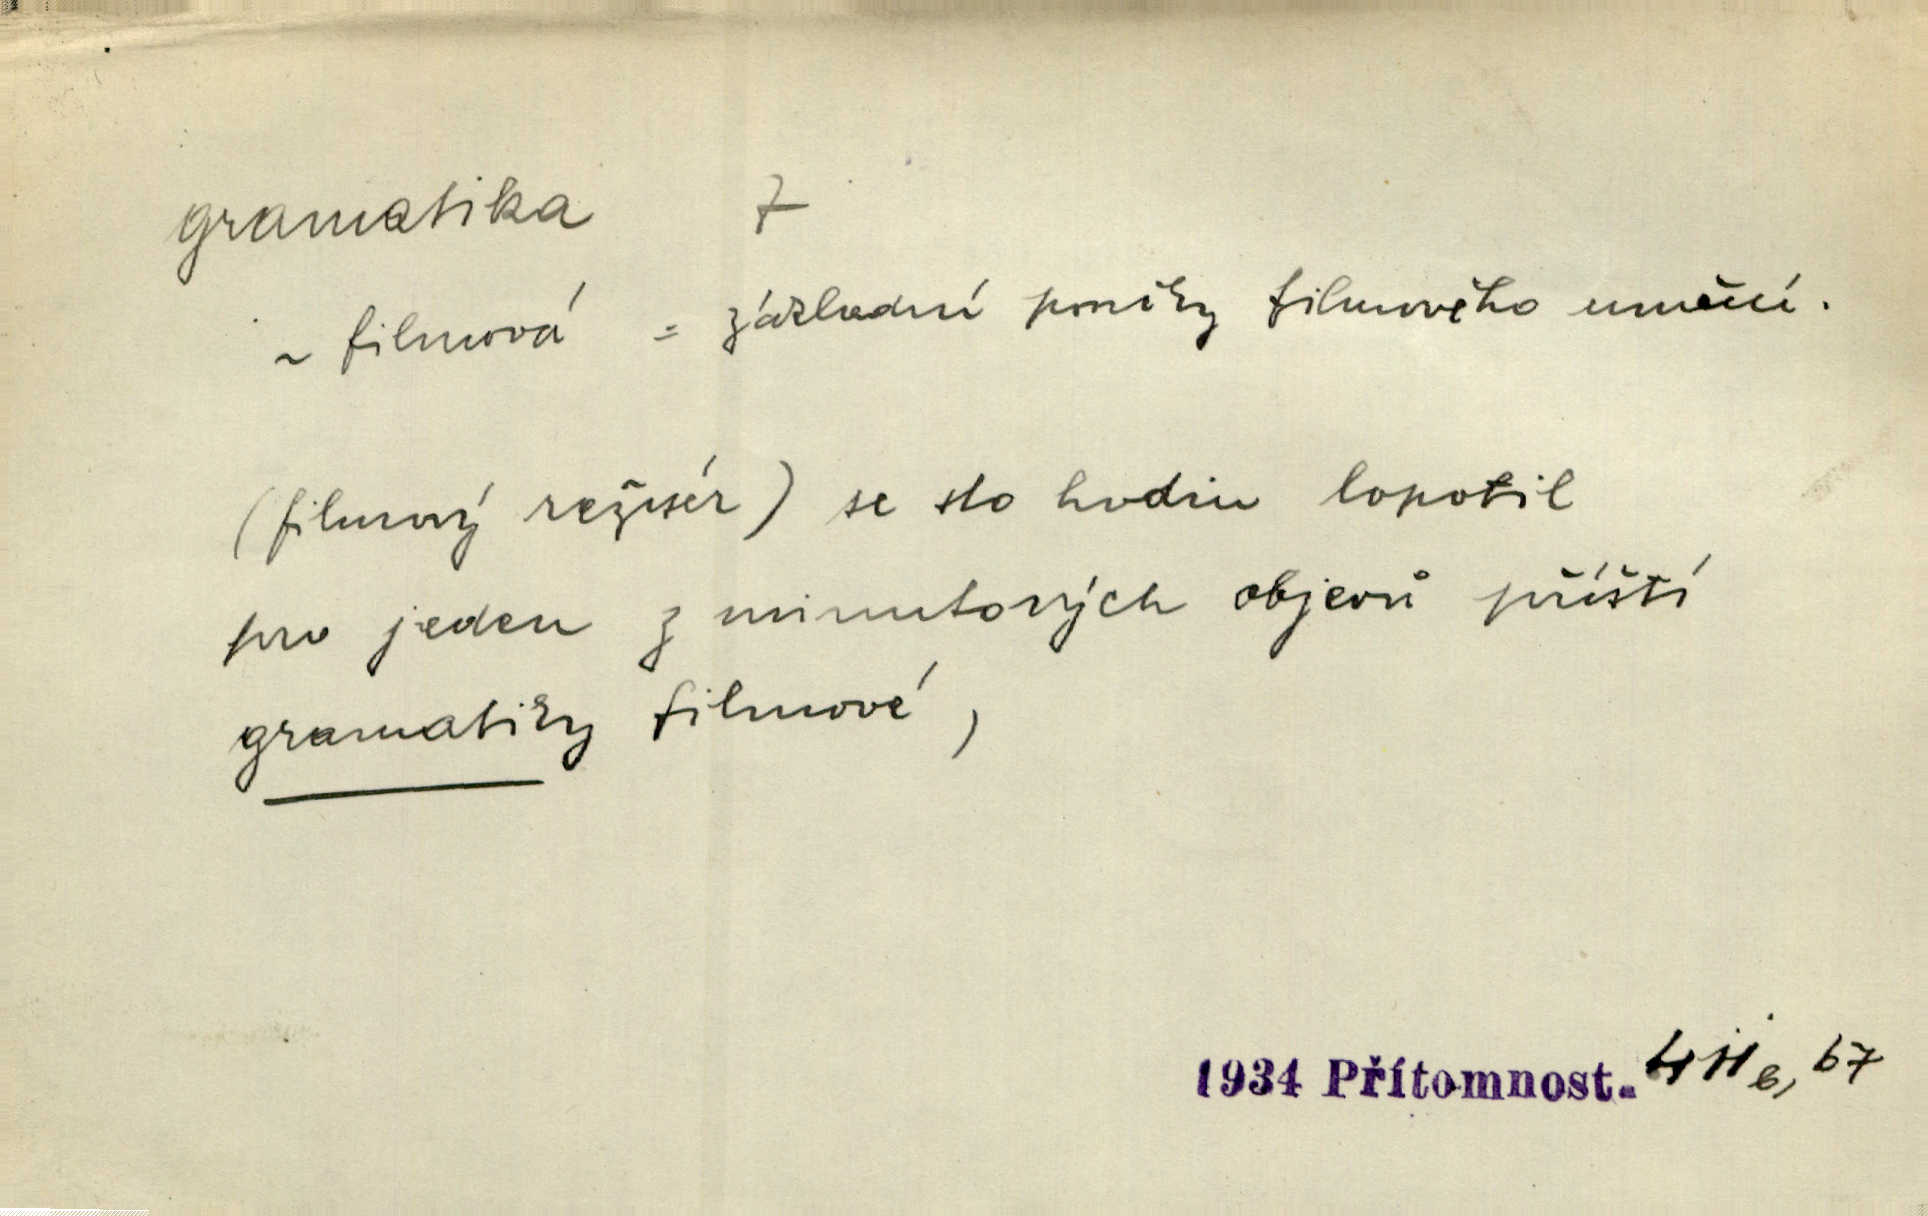 gramatika 7
~ filmová = základní poučky filmového umění.
(filmový režisér) se sto hodin lopotil
pro jeden z minutových objevů příští
gramatiky filmové,
1934 Přítomnost. 67